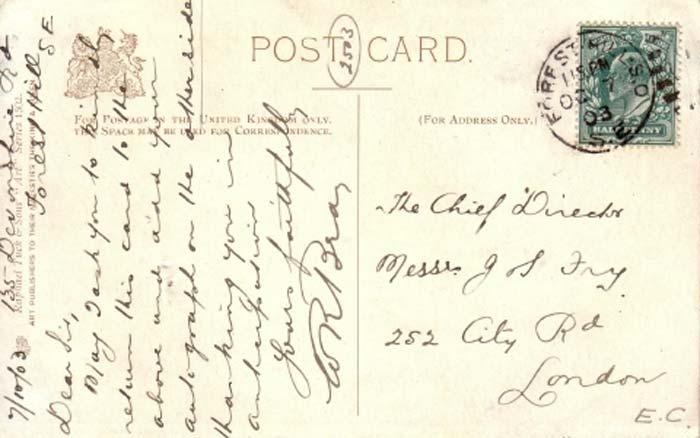 POST CARD.
2503
FOR POSTAGE IN THE UNITED KINGDOM ONLY.
THIS SPACE MAY BE USED FOR CORRESPONDENCE.
(FOR ADDRESS ONLY.)
FOREST HILL S.O.
OC 03
S.E
HALFPENNY
Raphael Tuck & Sons "Art" Series 1502
ART PUBLISHERS TO THEIR MAJESTIES THE KING &
135 Devonshire Rd
Forest Hill
SE
7/10/03
Dear Sir,
May I ask you to kindly
return this card to the
above and add your
autograph on the other side
thanking you in
anticipation
Yours faithfully
W R Bray
The Chief Director
Messrs J S Fry
252 City Rd
London
E.C.